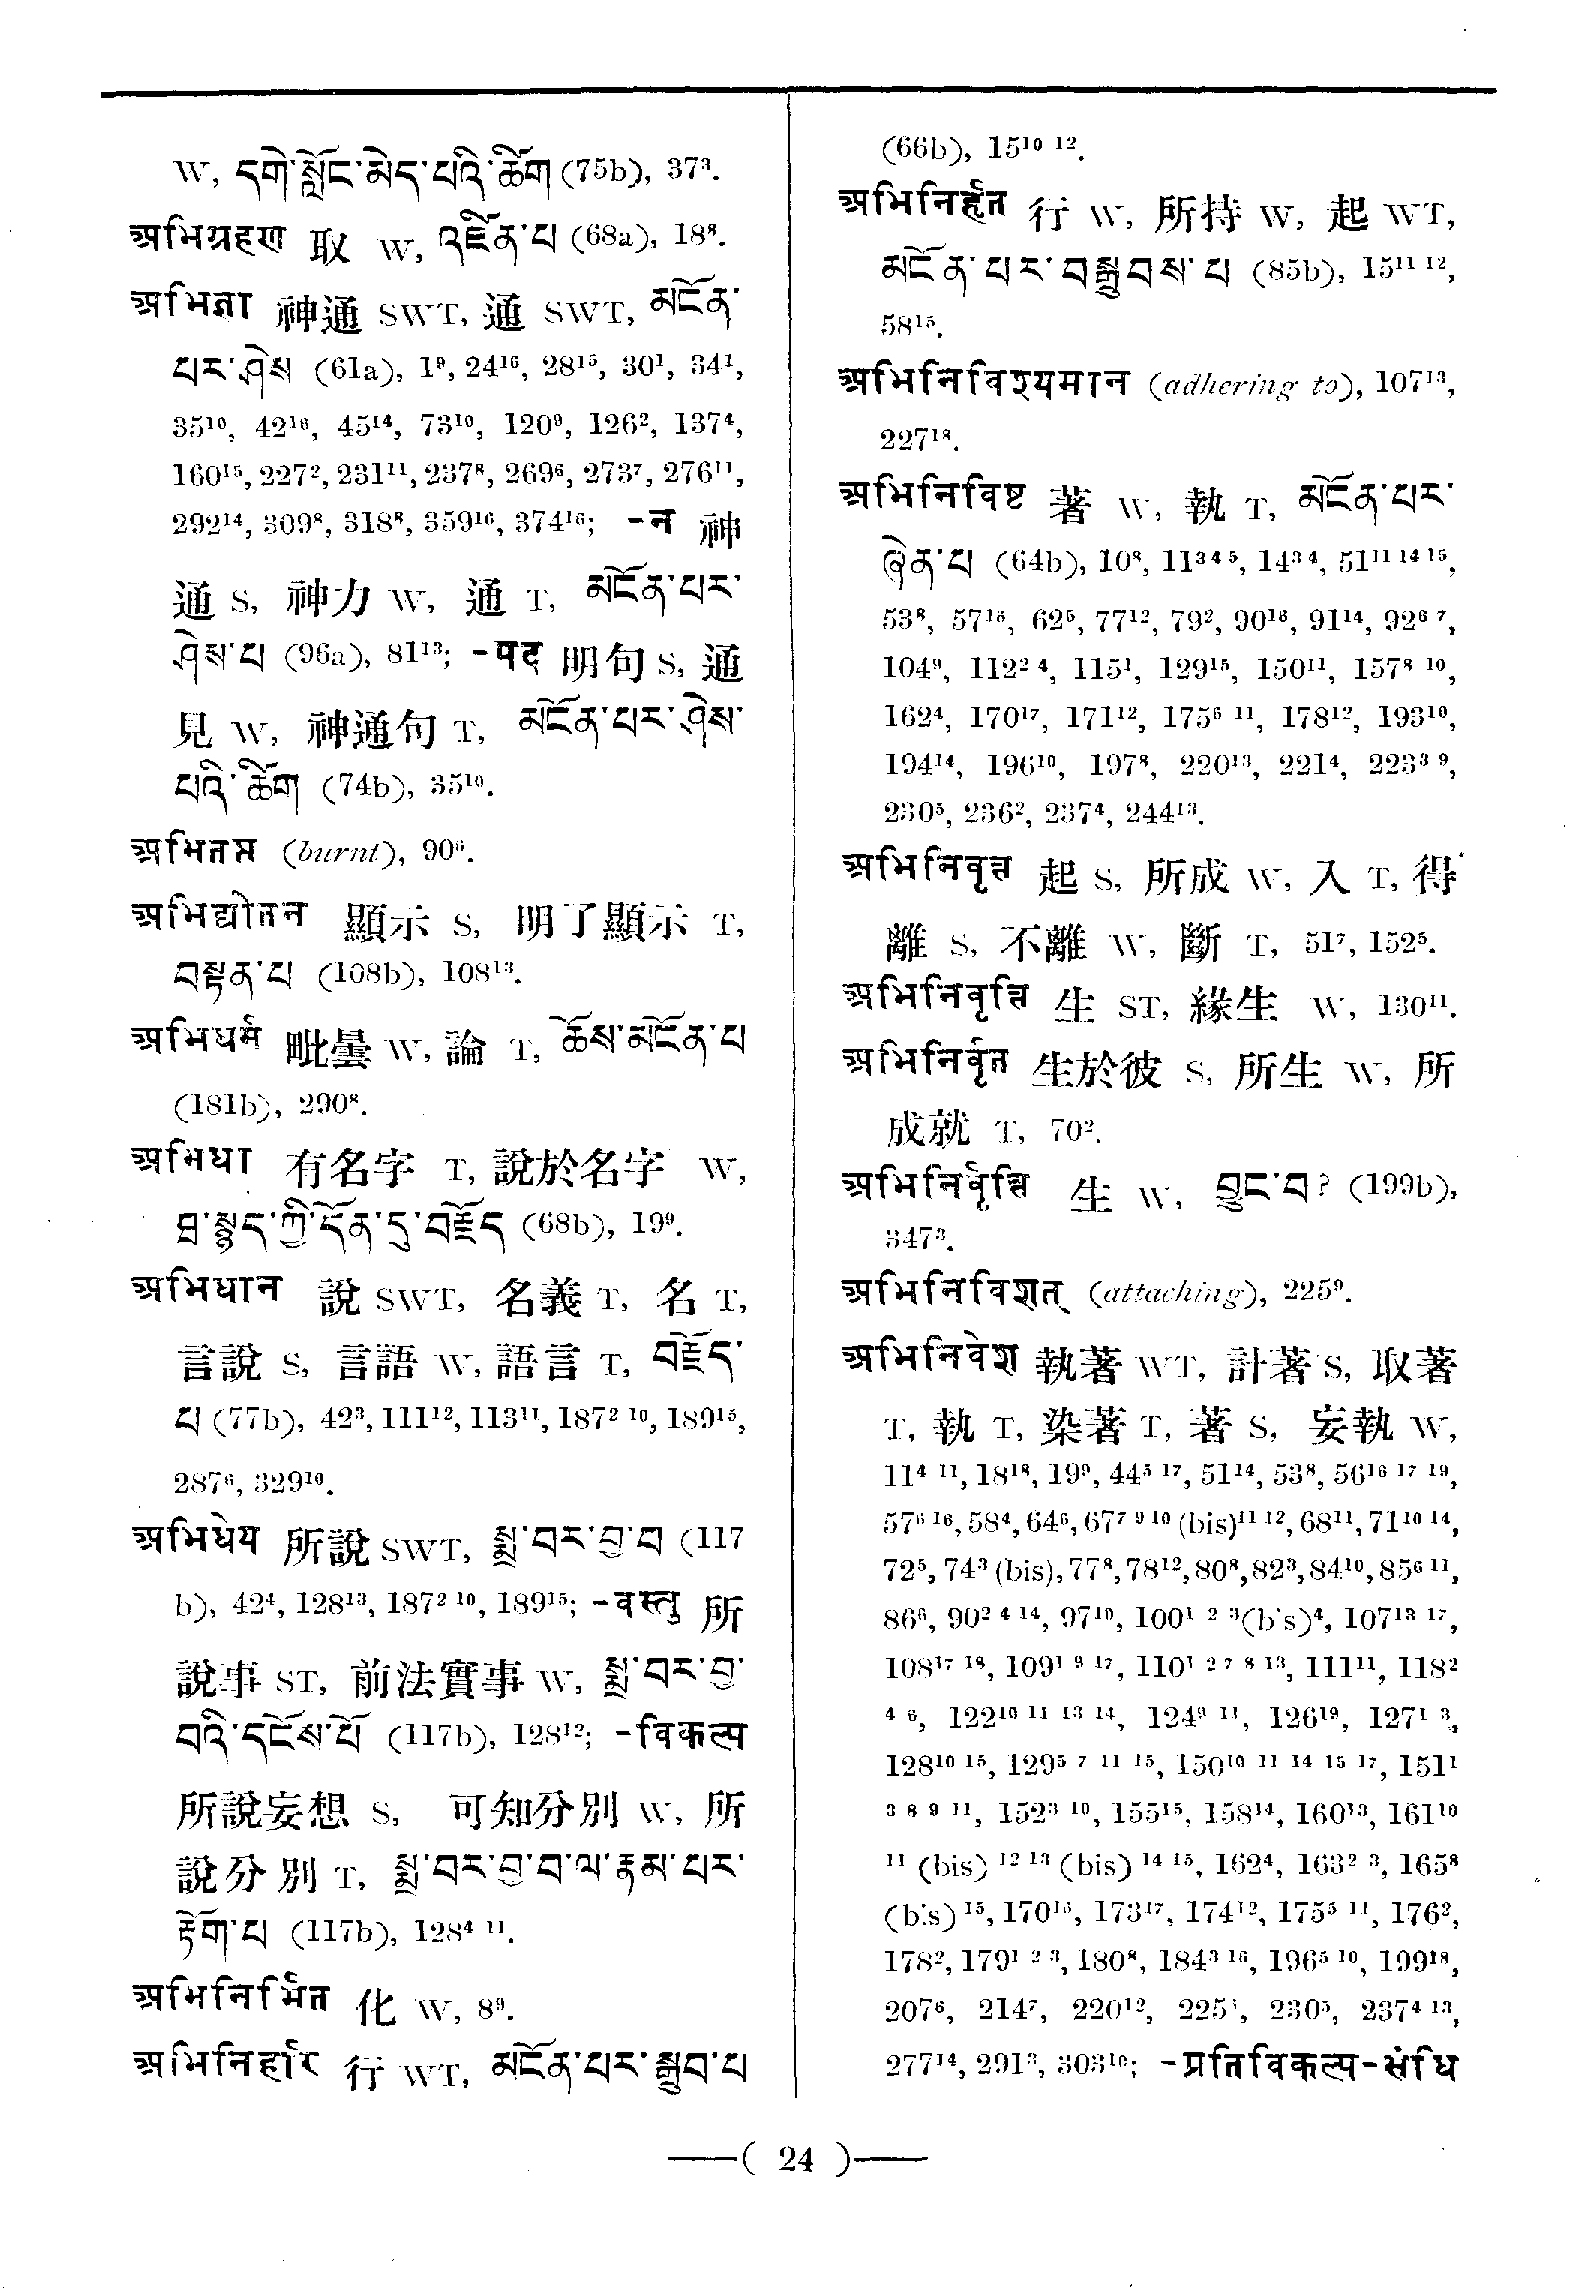 W, དགེ་སློང་མེད་པའི་ཚོག (75b), 37³.
अभिग्रहण 取 W, འཛིན་པ (68a), 18⁸.
अभिज्ञा 神通 SWT, 通 SWT, མངོན་
པར་ཤེས (61a), 1⁹, 24¹⁶, 28¹⁵, 30¹, 34¹,
35¹⁰, 42¹⁶, 45¹⁴, 73¹⁰, 120⁹, 126², 137⁴,
160¹⁵, 227², 231¹¹, 237⁸, 269⁶, 273⁷, 276¹¹,
292¹⁴, 309⁸, 318⁸, 359¹⁶, 374¹⁶; -न 神
通 S, 神力 W, 通 T, མངོན་པར་
ཤེས་པ (96a), 81¹³; -पद 明句 S, 通
見 W, 神通句 T, མངོན་པར་ཤེས་
པའི་ཚོག (74b), 35¹⁰.
अभितप्त (burnt), 90⁶.
अभिद्योतन 顯示 S, 明了顯示 T,
བསྟན་པ (108b), 108¹³.
अभिधर्म 毗曇 W, 論 T, ཆོས་མངོན་པ
(181b), 290⁸.
अभिधा 有名字 T, 說於名字 W,
ཐ་སྙད་ཀྱི་དོན་དུ་བརྗོད (68b), 19⁹.
अभिधान 說 SWT, 名義 T, 名 T,
言說 S, 言語 W, 語言 T, བརྗོད་
པ (77b), 42³, 111¹², 113¹¹, 187² ¹⁰, 189¹⁵,
287⁶, 329¹⁰.
अभिधेय 所說 SWT, སྨྲ་བར་བྱ་བ (117
b), 42⁴, 128¹³, 187² ¹⁰, 189¹⁵; -वस्तु 所
說事 ST, 前法實事 W, སྨྲ་བར་བྱ་
བའི་དངོས་པོ (117b), 128¹²; -विकल्प
所說妄想 S, 可知分別 W, 所
說分別 T, སྨྲ་བར་བྱ་བ་ལ་རྣམ་པར་
རྟོག་པ (117b), 128⁴ ¹¹.
अभिनिर्मित 化 W, 8⁹.
अभिनिर्हार 行 WT, མངོན་པར་སྒྲུབ་པ
(66b), 15¹⁰ ¹².
अभिनिर्हृत 行 W, 所持 W, 起 WT,
མངོན་པར་བསྒྲུབས་པ (85b), 15¹¹ ¹²,
58¹⁵.
अभिनिविश्यमान (adhering to), 107¹³,
227¹⁸.
अभिनिविष्ट 著 W, 執 T, མངོན་པར་
ཞེན་པ (64b), 10⁸, 11³ ⁴ ⁵, 14³ ⁴, 51¹¹ ¹⁴ ¹⁵,
53⁸, 57¹⁶, 62⁵, 77¹², 79², 90¹⁶, 91¹⁴, 92⁶ ⁷,
104⁹, 112² ⁴, 115¹, 129¹⁵, 150¹¹, 157⁸ ¹⁰,
162⁴, 170¹⁷, 171¹², 175⁶ ¹¹, 178¹², 193¹⁰,
194¹⁴, 196¹⁰, 197⁸, 220¹³, 221⁴, 223³ ⁹,
230⁵, 236², 237⁴, 244¹³.
अभिनिवृत्त 起 S, 所成 W, 入 T, 得
離 S, 不離 W, 斷 T, 51⁷, 152⁵.
अभिनिवृत्ति 生 ST, 緣生 W, 130¹¹.
अभिनिर्वृत 生於彼 S, 所生 W, 所
成就 T, 70².
अभिनिर्वृत्ति 生 W, བྱུང་བ? (199b),
347³.
अभिनिविशत् (attaching), 225⁹.
अभिनिवेश 執著 WT, 計著 S, 取著
T, 執 T, 染著 T, 著 S, 妄執 W,
11⁴ ¹¹, 18¹⁸, 19⁹, 44⁵ ¹⁷, 51¹⁴, 53⁸, 56¹⁶ ¹⁷ ¹⁹,
57⁶ ¹⁶, 58⁴, 64⁶, 67⁷ ⁹ ¹⁰ (bis)¹¹ ¹², 68¹¹, 71¹⁰ ¹⁴,
72⁵, 74³ (bis), 77⁸, 78¹², 80⁸, 82³, 84¹⁰, 85⁶ ¹¹,
86⁶, 90² ⁴ ¹⁴, 97¹⁰, 100¹ ² ³(bis)⁴, 107¹³ ¹⁷,
108¹⁷ ¹⁸, 109¹ ⁹ ¹⁷, 110¹ ² ⁷ ⁸ ¹³, 111¹¹, 118²
⁴ ⁶, 122¹⁰ ¹¹ ¹³ ¹⁴, 124⁹ ¹¹, 126¹⁹, 127¹ ³,
128¹⁰ ¹⁵, 129⁵ ⁷ ¹¹ ¹⁵, 150¹⁰ ¹¹ ¹⁴ ¹⁵ ¹⁷, 151¹
³ ⁸ ⁹ ¹¹, 152³ ¹⁰, 155¹⁵, 158¹⁴, 160¹³, 161¹⁰
¹¹ (bis) ¹² ¹³ (bis) ¹⁴ ¹⁵, 162⁴, 163² ³, 165⁸
(bis) ¹⁵, 170¹⁶, 173¹⁷, 174¹², 175⁵ ¹¹, 176²,
178², 179¹ ² ³, 180⁸, 184³ ¹⁶, 196⁵ ¹⁰, 199¹⁸,
207⁶, 214⁷, 220¹², 225¹, 230⁵, 237⁴ ¹³,
277¹⁴, 291³, 303¹⁰; -प्रतिविकल्प-संधि
—( 24 )—